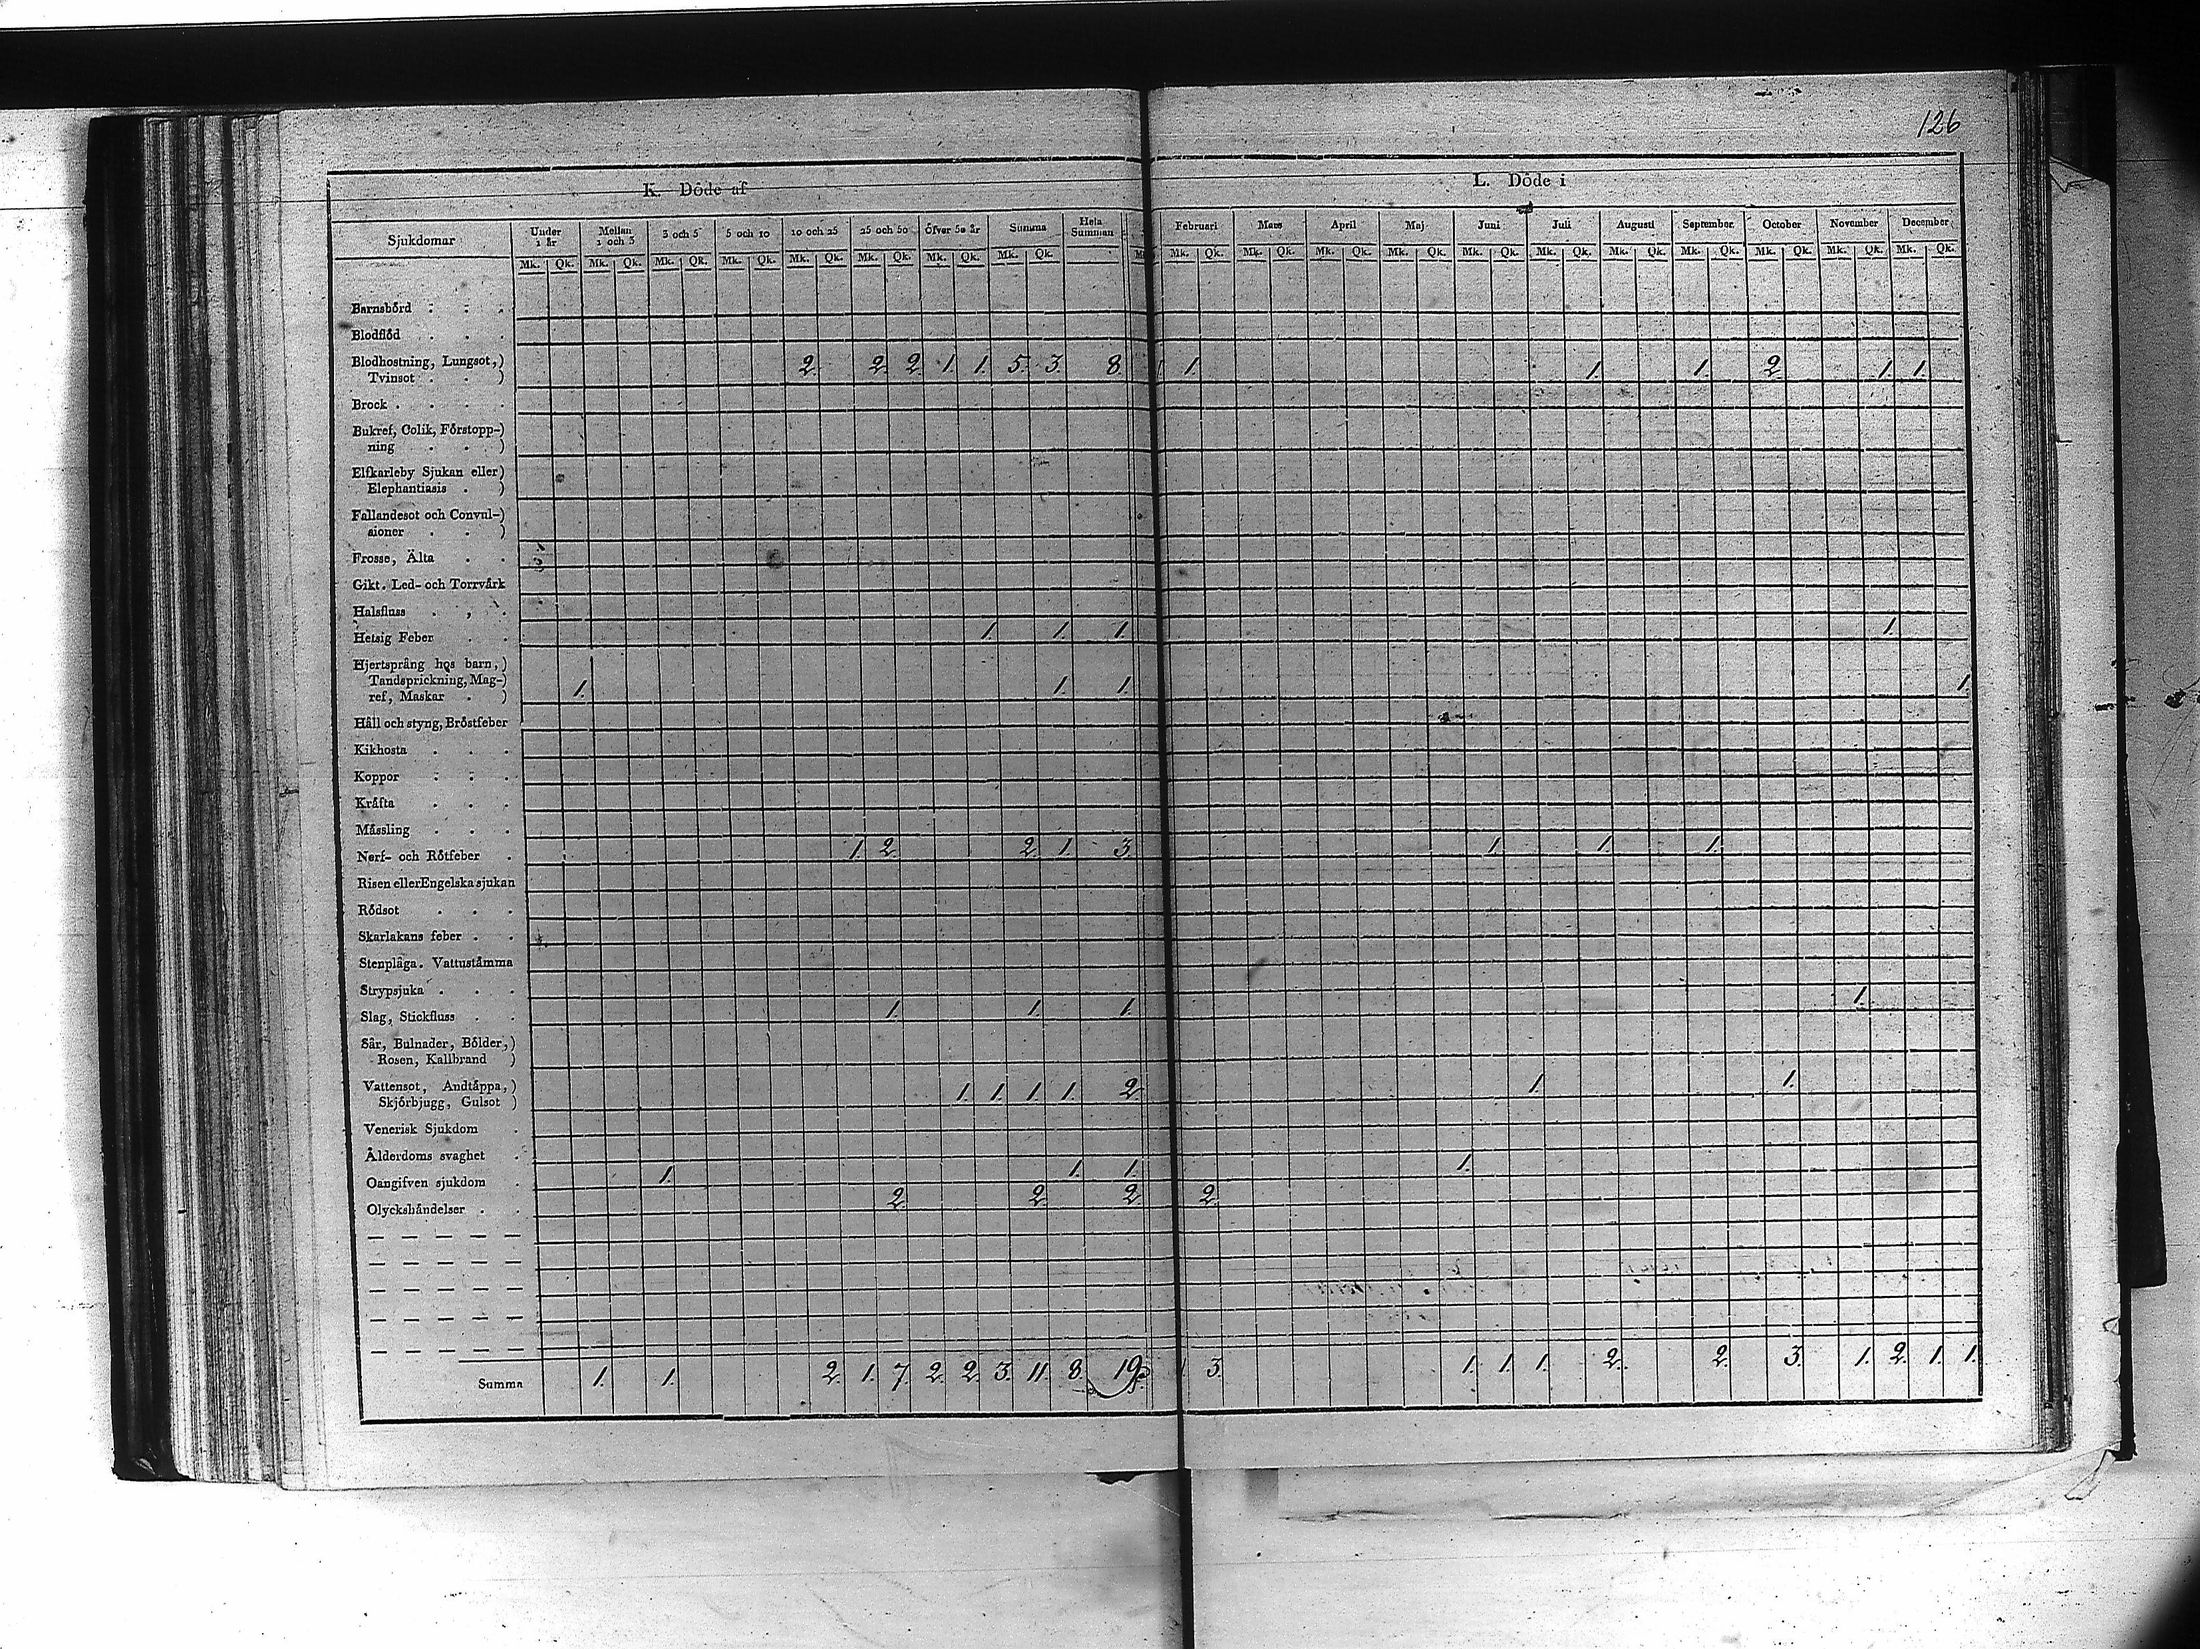 126
K. Döde af L. Döde i
Sjukdomar Under 1 år Mellan 1 och 3 3 och 5 5 och 10 10 och 25 25 och 50 Öfver 50 år Summa Hela Summan Februari Mars April Maj Juni Juli Augusti September October November December
Mk. Qk. Mk. Qk. Mk. Qk. Mk. Qk. Mk. Qk. Mk. Qk. Mk. Qk. Mk. Qk. Mk. Qk. Mk. Qk. Mk. Qk. Mk. Qk. Mk. Qk. Mk. Qk. Mk. Qk. Mk. Qk. Mk. Qk. Mk. Qk. Mk. Qk.
Barnsbörd . . .
Blodflöd . . .
Blodhostning, Lungsot,)
Tvinsot . . ) 2. 2. 2. 1. 1. 5. 3. 8. 1. 1. 1. 2. 1. 1.
Brock . . . .
Bukref, Colik, Förstopp-)
ning . . )
Elfkarleby Sjukan eller)
Elephantiasis . )
Fallandesot och Convul-)
sioner . . )
Frosse, Älta . .
Gikt. Led- och Torrvärk
Halsfluss . , .
Hetsig Feber . . 1. 1. 1. 1.
Hjertsprång hos barn,)
Tandsprickning, Mag-)
ref, Maskar . ) 1. 1. 1. 1.
Håll och styng, Bröstfeber
Kikhosta . . .
Koppor . . .
Kräfta . . .
Mässling . . .
Nerf- och Rötfeber . 1. 2. 2. 1. 3. 1. 1. 1.
Risen eller Engelska sjukan
Rödsot . . .
Skarlakans feber . .
Stenplåga. Vattustämma
Strypsjuka . . .
Slag, Stickfluss . . 1. 1. 1. 1.
Sår, Bulnader, Bölder,)
Rosen, Kallbrand )
Vattensot, Andtäppa,)
Skjörbjugg, Gulsot ) 1. 1. 1. 1. 2. 1. 1.
Venerisk Sjukdom .
Ålderdoms svaghet .
Oangifven sjukdom . 1. 1. 1. 1.
Olyckshändelser . . 2. 2. 2. 2.
Summa 1. 1. 2. 1. 7. 2. 2. 3. 11. 8. 19. 3. 1. 1. 1. 2. 2. 3. 1. 2. 1. 1.